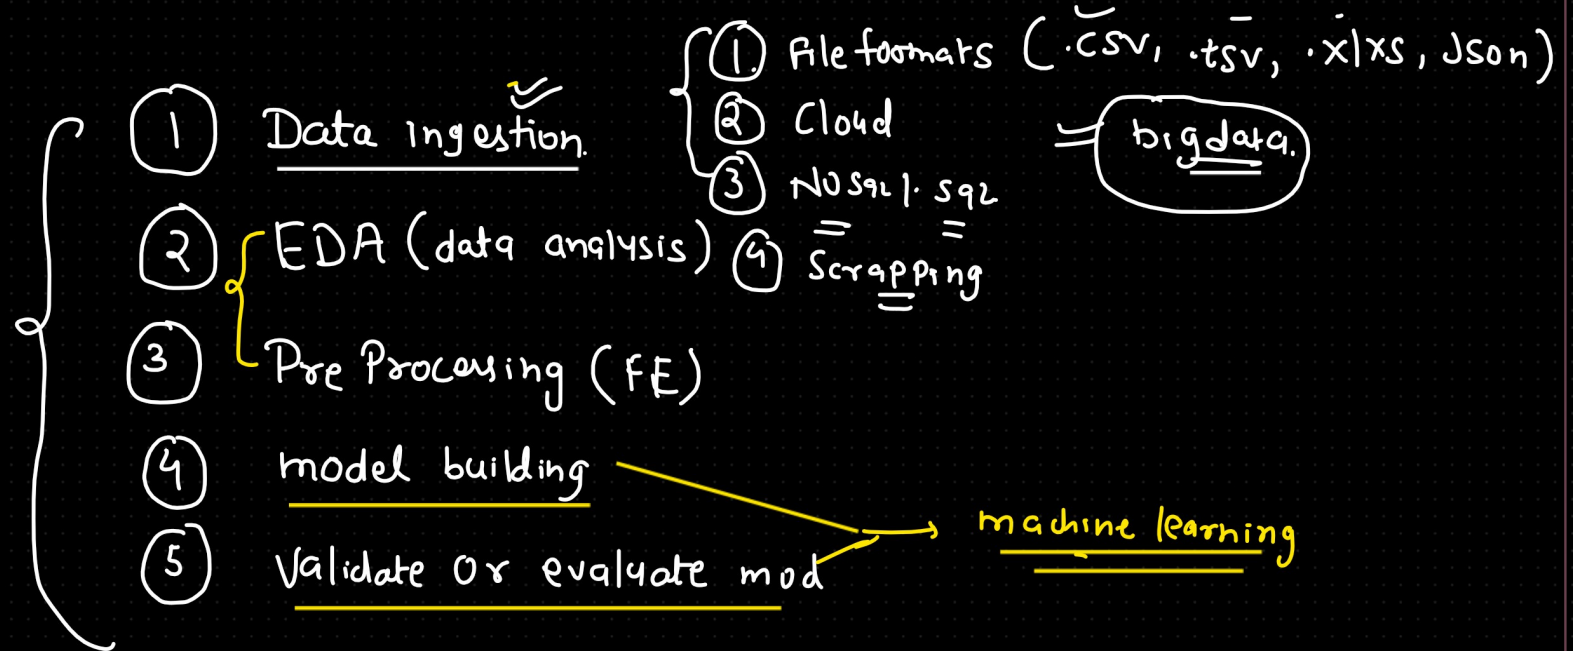 1 Data ingestion.
1. File formats (.csv, .tsv, .xlxs, Json)
2 Cloud
big data.
3 NoSql. sql
4 Scrapping
2 EDA (data analysis)
3 Pre Processing (FE)
4 model building
5 Validate or evaluate mod
machine learning